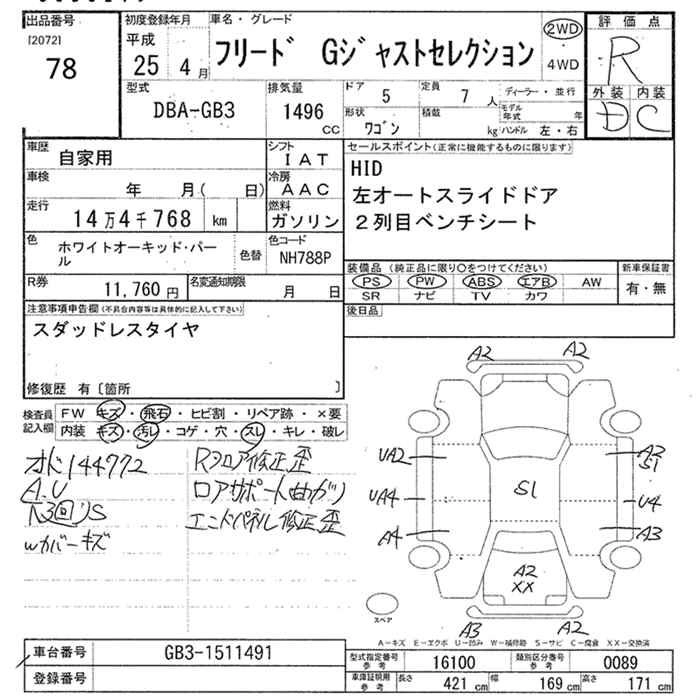 出品番号
[2072]
78
初度登録年月
平成
25年 4月
車名・グレード
フリード Gジャストセレクション
2WD
・
4WD
評価点
R
外装 内装
D C
型式
DBA-GB3
排気量
1496
CC
ドア
5
定員
7 人
ディーラー・並行
モデル
年式 年
形状
ワゴン
積載
kg
ハンドル 左・右
車歴
自家用
シフト
IAT
車検
年 月( 日)
冷房
AAC
走行
14万4千768 km
燃料
ガソリン
色
ホワイトオーキッド・パー
ル
色替
色コード
NH788P
R券
11,760 円
名変通知期限
月 日
セールスポイント(正常に機能するものに限ります)
HID
左オートスライドドア
2列目ベンチシート
装備品 (純正品に限り○をつけてください)
PS PW ABS エアB AW
SR ナビ TV カワ
新車保証書
有・無
後日品
注意事項申告欄(不具合内容等は具体的に記入して下さい)
スタッドレスタイヤ
修復歴 有〔箇所 〕
検査員
記入欄
FW キズ・飛石・ヒビ割・リペア跡・×要
内装 キズ・汚レ・コゲ・穴・スレ・キレ・破レ
オド144772
A.U
小3回リS
Wカバーキズ
Rフロア修正歪
ロアサポート曲がり
エンドパネル修正歪
A2 A2
UA2
A3
S1
S1
UA4
U4
A4
A3
A2
XX
A3 A2
スペア
A−キズ E−エクボ U−凹み W−補修跡 S−サビ C−腐食 XX−交換済
車台番号
GB3-1511491
登録番号
型式指定番号
参考
16100
類別区分番号
参考
0089
車庫証明用
参考
長さ
421 cm
幅
169 cm
高さ
171 cm